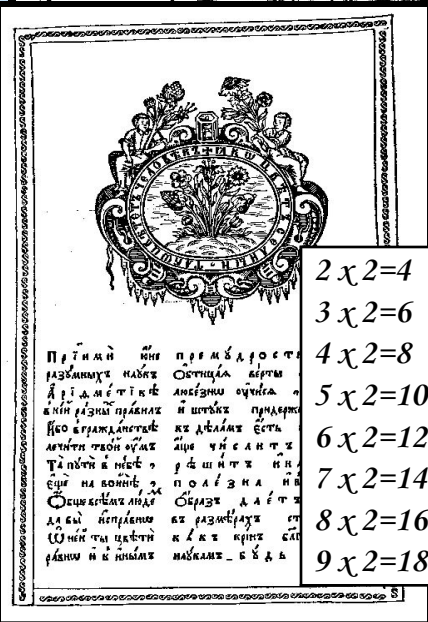 ꙗ҆́кѡ цвѣ́тъ се́лный та́кѡ ѿцвѣте́тъ человѣ́къ
Прїимѝ ю҆́не премꙋ́дрости
разꙋ́мныхъ наꙋ́къ верты̀
А҆рїѳме́тїкѣ любе́знѡ ᲂу҆чи́сѧ ,
в не́й ра́зны пра́вилъ и҆ штꙋ́къ придерже
И҆́бо в гражда́нствѣ къ дѣла́мъ є҆́сть
лечи́ти тво́й ᲂу҆́мъ а҆́ще чи́слитъ
Та̀ пꙋтѝ в не́бѣ , рѣши́тъ и҆ на
є҆щѐ на войнѣ̀ , поле́зна и҆ в
Ѻ҆́бще всѣ́мъ люде́мъ ѻ҆́бразъ дае́тъ
дабы̀ и҆спра́внѡ въ размѣ́рахъ ст
Ѡ҆ не́й ты̀ цвѣтѝ ка́къ крі́нъ бла
ра́внѡ и҆ к и҆ны́мъ наꙋ́камъ бꙋ́дь
2 x 2=4
3 x 2=6
4 x 2=8
5 x 2=10
6 x 2=12
7 x 2=14
8 x 2=16
9 x 2=18